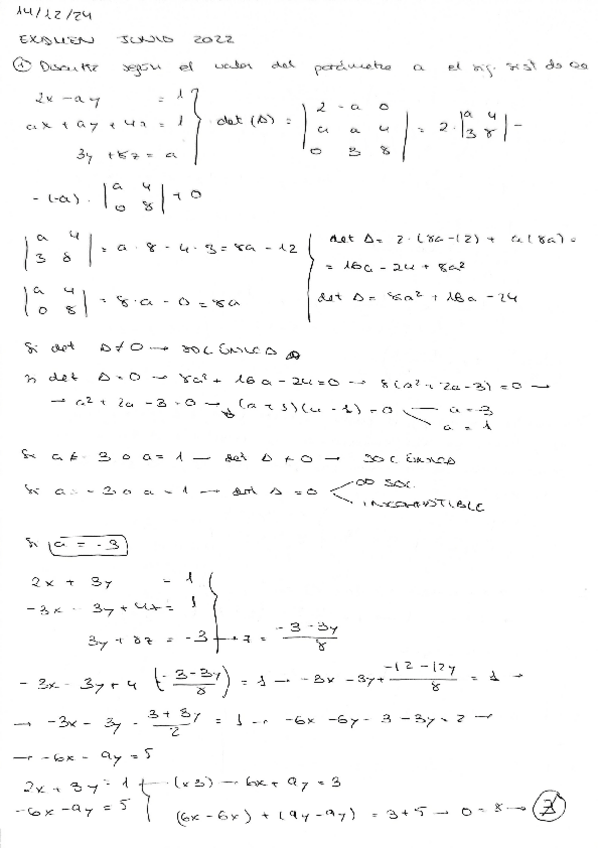 14/12/24
EXAMEN JUNIO 2022
① Discutir según el valor del parámetro a el sig. sist de
2x - ay = 1
ax + ay + 4z = 1
3y + 8z = a
det (A) = | 2 -a 0 | = 2 · | a 4 | -
| a a 4 | | 3 8 |
| 0 3 8 |
- (-a) · | a 4 | + 0
| 0 8 |
| a 4 | = a · 8 - 4 · 3 = 8a - 12
| 3 8 |
| a 4 | = 8 · a - 0 = 8a
| 0 8 |
det A = 2 · (8a - 12) + a(8a) =
= 16a - 24 + 8a²
det A = 8a² + 16a - 24
Si det A ≠ 0 → SOL ÚNICA
Si det A = 0 → 8a² + 16a - 24 = 0 → 8(a² + 2a - 3) = 0 →
→ a² + 2a - 3 = 0 → (a + 3)(a - 1) = 0
a = -3
a = 1
Si a ≠ -3 o a = 1 — det A ≠ 0 → SOL ÚNICA
Si a = -3 o a = 1 → det A = 0
∞ SOL.
Si a = -3
2x + 3y = 1
-3x - 3y + 4z = 1
3y + 8z = -3 → z = (-3 - 3y)/8
- 3x - 3y + 4 (-3 - 3y)/8 = 1 → -3x - 3y + (-12 - 12y)/8 = 1 →
→ -3x - 3y - (3 + 3y)/2 = 1 → -6x - 6y - 3 - 3y = 2 →
→ -6x - 9y = 5
2x + 3y = 1 ← (x3) → 6x + 9y = 3
-6x - 9y = 5
(6x - 6x) + (9y - 9y) = 3 + 5 → 0 = 8 → ∄